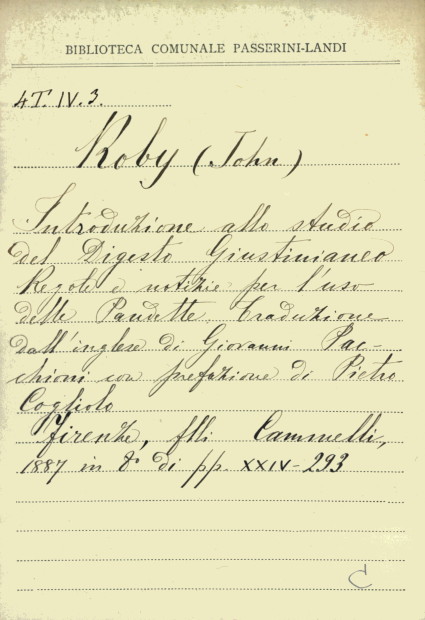 BIBLIOTECA COMUNALE PASSERINI-LANDI
4T. IV. 3.
Roby (John)
Introduzione allo studio
del Digesto Giustinianeo
Regole e notizie per l'uso
delle Pandette. Traduzione
dall'inglese di Giovanni Pac-
chioni con prefazione di Pietro
Cogliolo
Firenze, flli Cammelli,
1887 in 8º di pp. XXIV-293
C